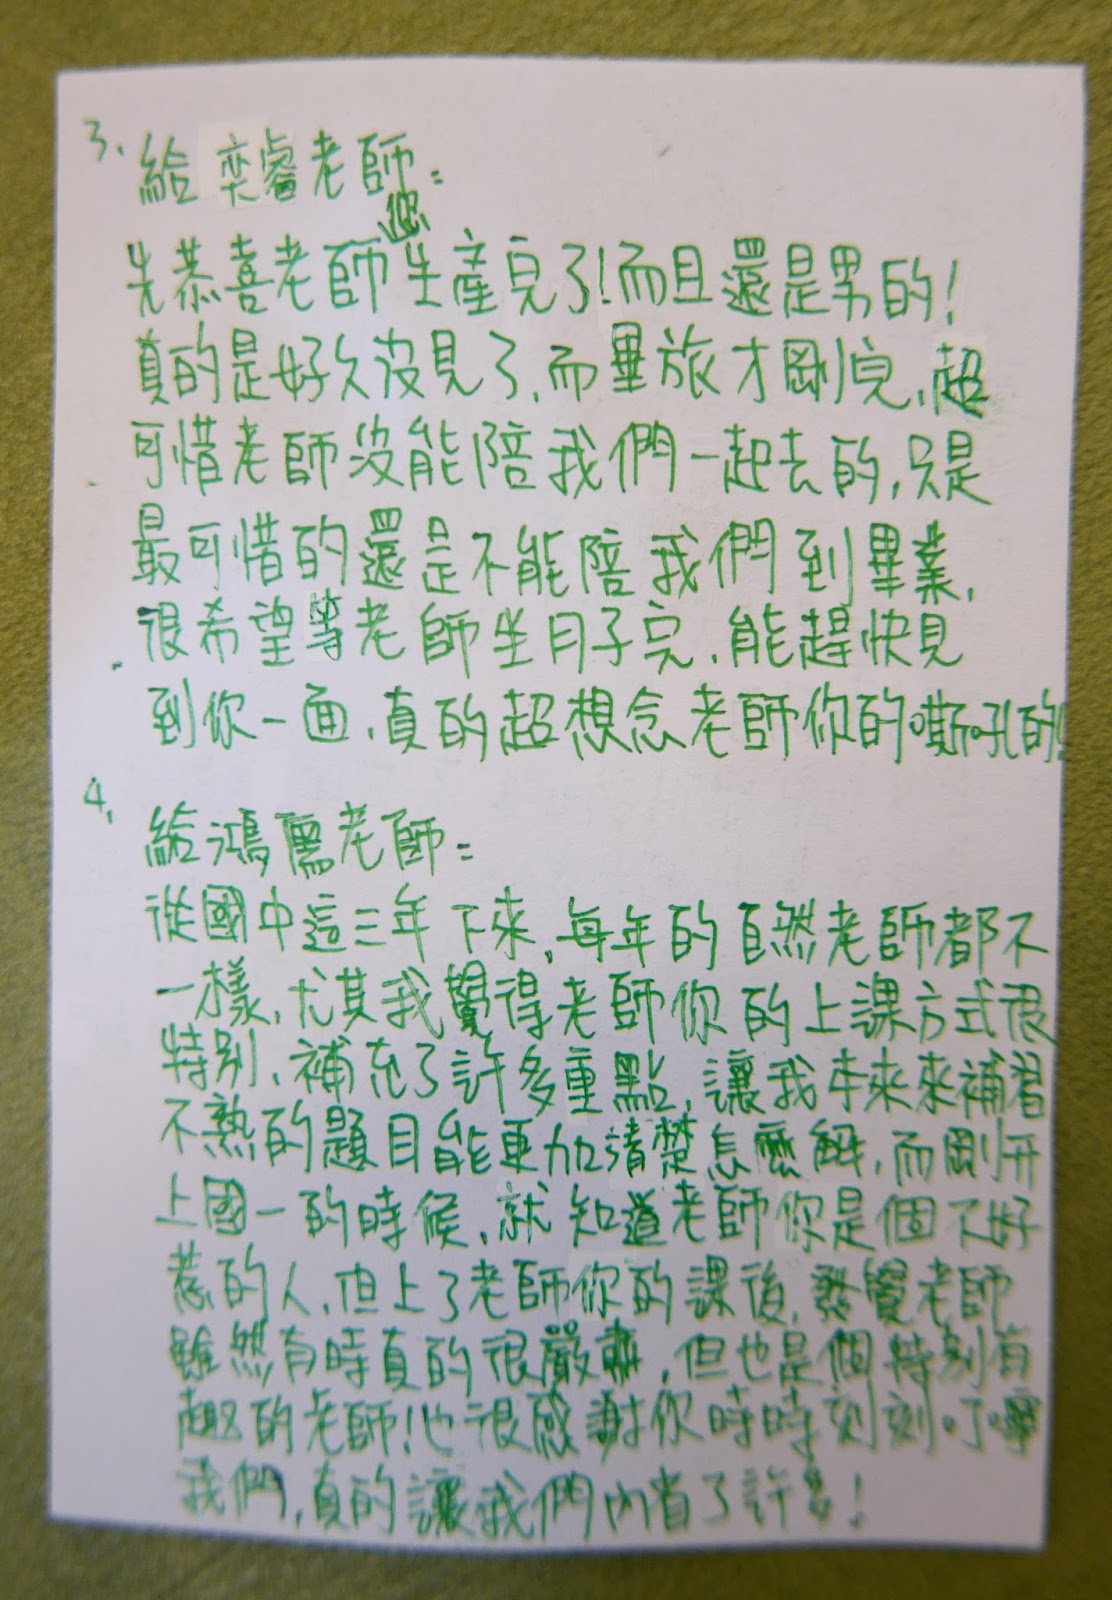 3. 給奕睿老師:
先恭喜老師您生產完了!而且還是男的!
真的是好久沒見了,而畢旅才剛完,超
可惜老師沒能陪我們一起去的,只是
最可惜的還是不能陪我們到畢業,
很希望等老師坐月子完,能趕快見
到你一面,真的超想念老師你的嘶吼的!
4. 給鴻鷹老師:
從國中這三年下來,每年的自然老師都不
一樣,尤其我覺得老師你的上課方式很
特別,補充了許多重點,讓我本來來補習
不熟的題目能更加清楚怎麼解,而剛開
上國一的時候,就知道老師你是個不好
惹的人,但上了老師你的課後,發覺老師
雖然有時真的很嚴肅,但也是個特別有
趣的老師!也很感謝你時時刻刻叮嚀
我們,真的讓我們內省了許多!